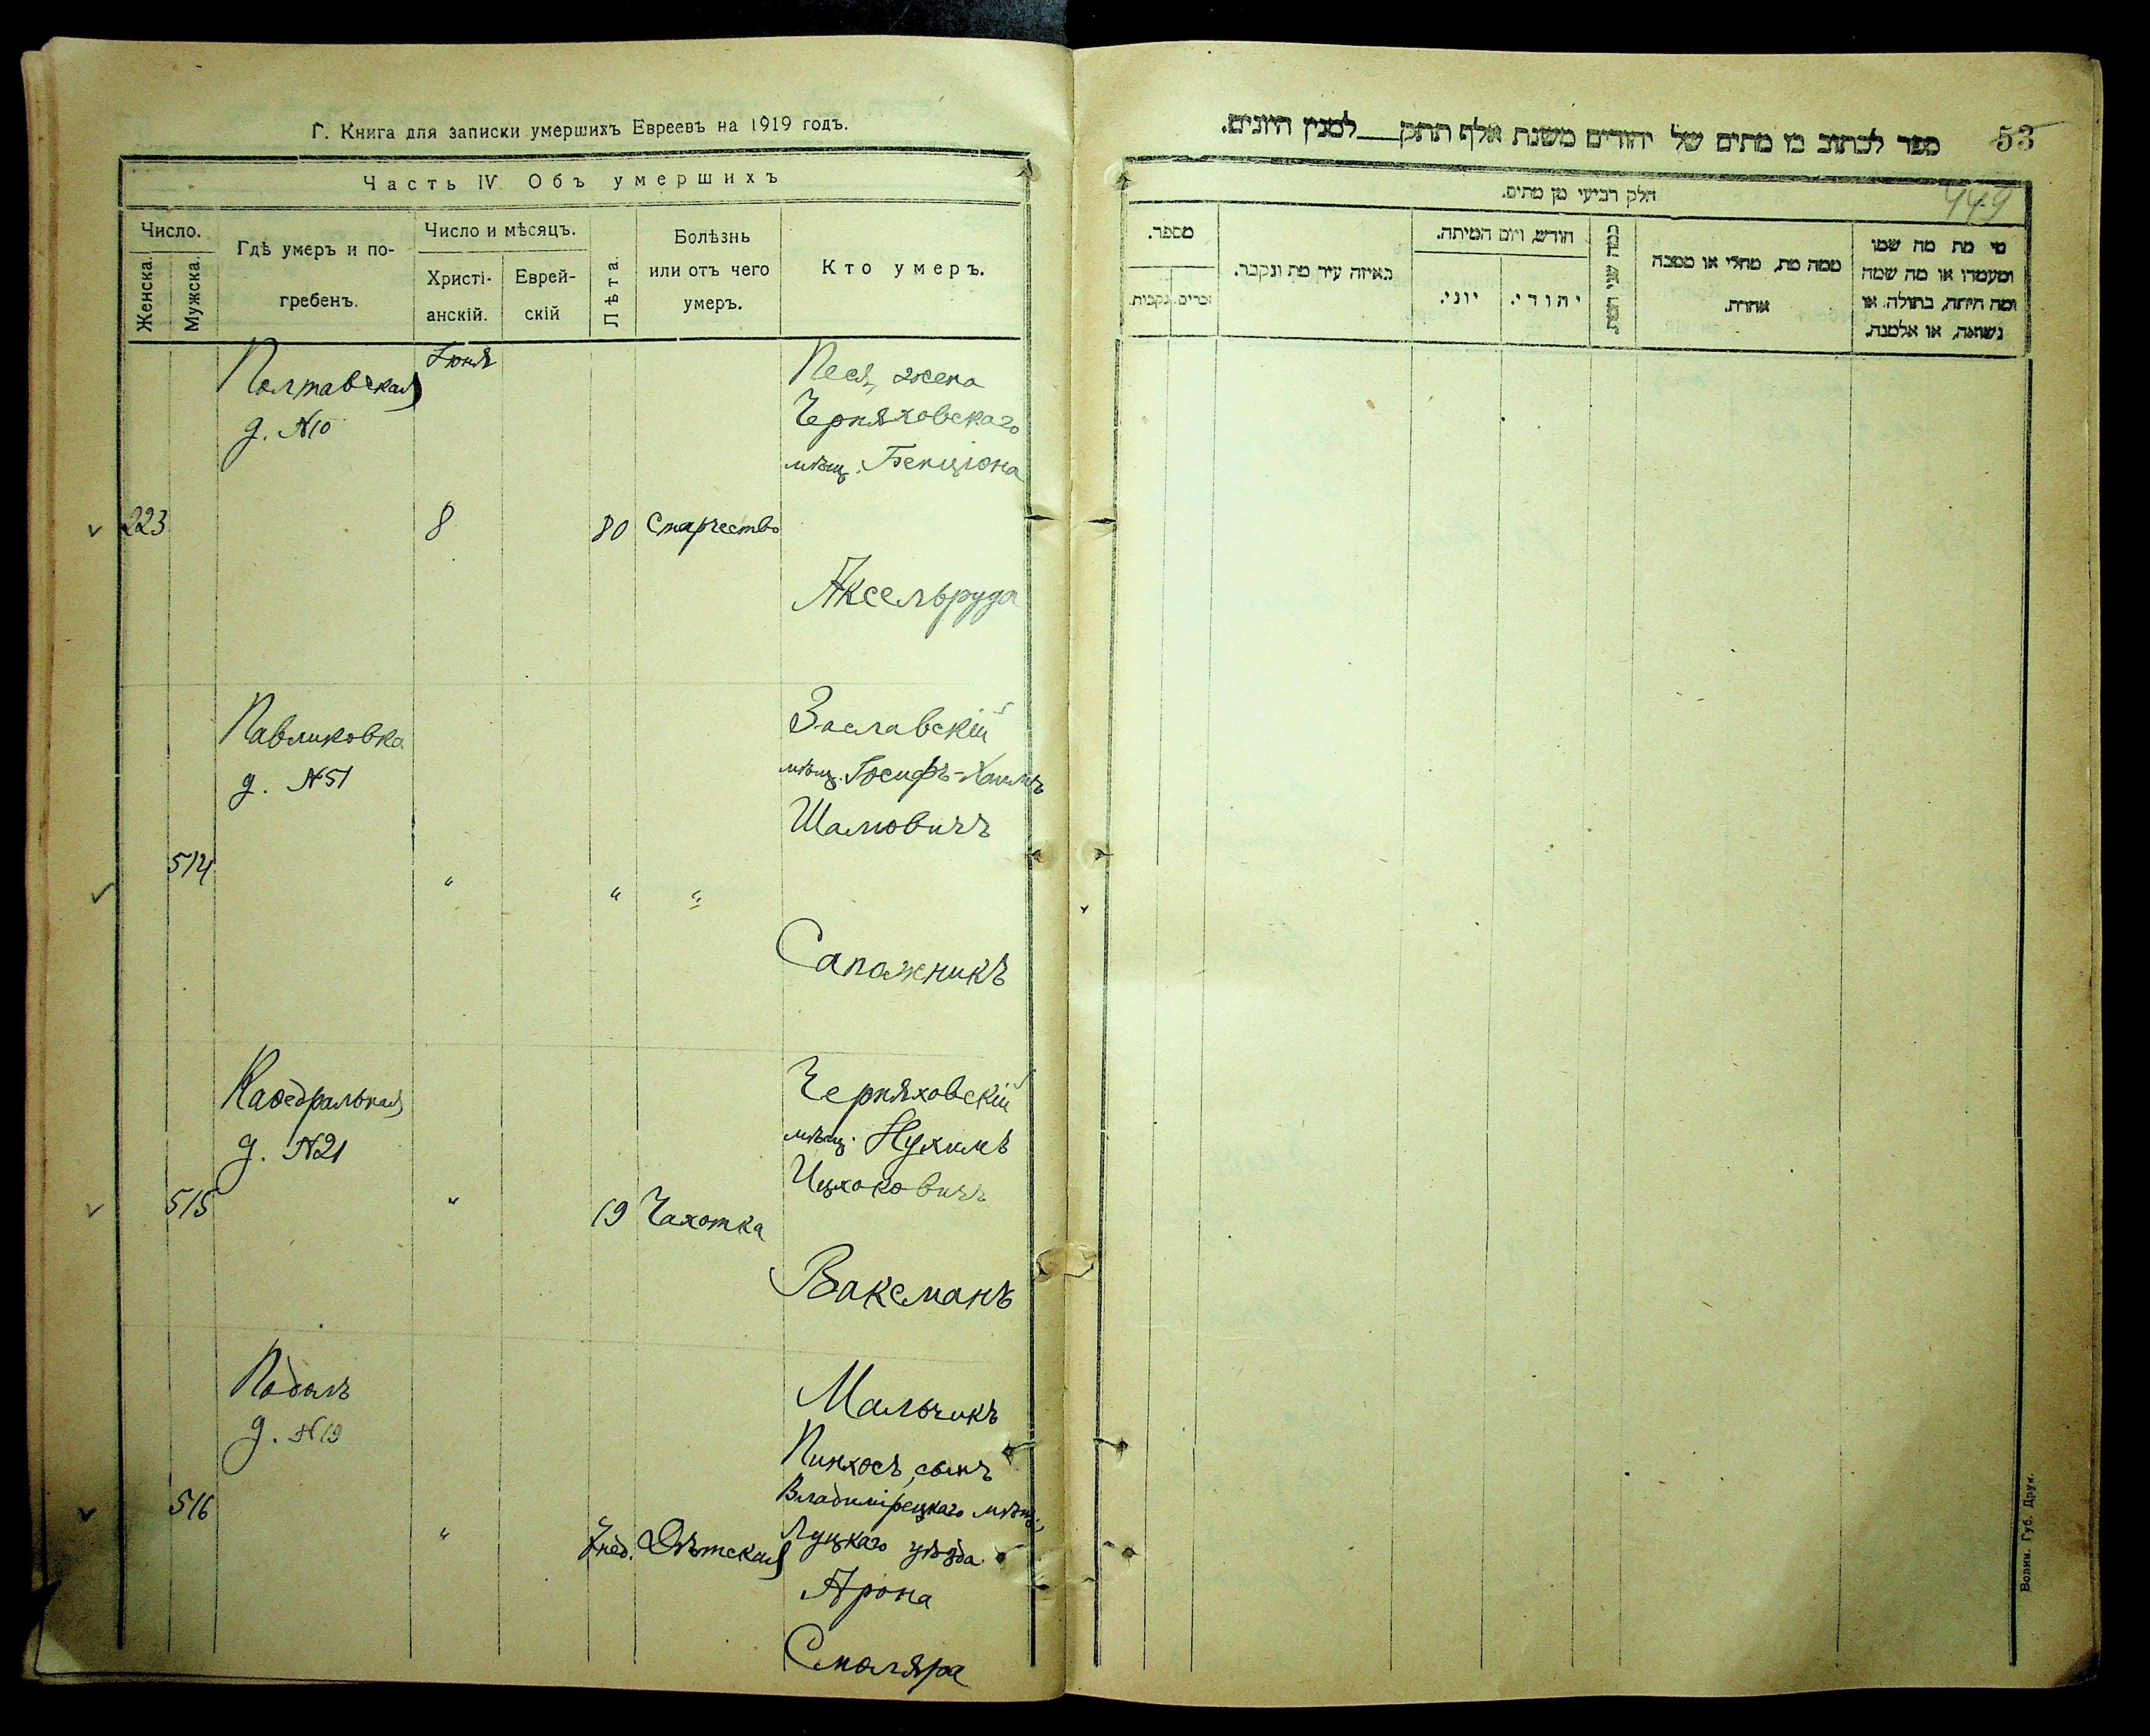 Г. Книга для записки умершихъ Евреевъ на 1919 годъ.
Часть IV. Объ умершихъ
Число.
Женска.
Мужска.
Гдѣ умеръ и по-
гребенъ.
Число и мѣсяцъ.
Христі-
анскій.
Еврей-
скій
Лѣта.
Болѣзнь
или отъ чего
умеръ.
Кто умеръ.
Полтавская
д. №10
Іюня
Песя, жена
Черняховскаго
мѣщ. Бенціона
223
8
80
Старчество
Аксельруда
Павликовка
д. №51
Заславскій
мѣщ. Іосифъ-Хаимъ
Шамовичъ
514
"
"
"
Сапожникъ
Каѳедральная
д. №21
Черняховскій
мѣщ. Нухимъ
Ицхоковичъ
515
"
19
Чахотка
Ваксманъ
Подолъ
д. №19
Мальчикъ
Пинхосъ, сынъ
Владимірецкаго мѣщ.,
Луцкаго уѣзда
516
"
7нед.
Дѣтская
Арона
Смоляра
53
ספר לכתוב מן מתים של יהודים משנת אלף תתק__למנין היונים.
449
חלק רביעי מן מתים.
מספר.
זכרים.
נקבות.
באיזה עיר מת ונקבר.
חודש ויום המיתה.
יוני.
יהודי.
כמה שני המת.
ממה מת, מחלי או מסבה
אחרת.
מי מת מה שמו
ומעמדו או מה שמה
ומה היתה, בתולה או
נשואה, או אלמנה.
Волин. Губ. Друк.